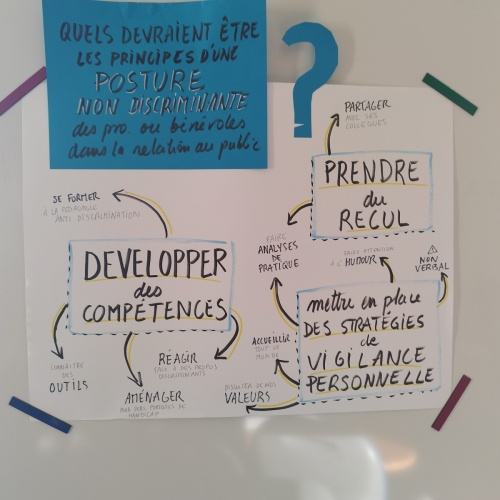 QUELS DEVRAIENT ÊTRE
LES PRINCIPES D'UNE
POSTURE
NON DISCRIMINANTE
des pro. ou bénévoles
dans la relation au public
?
PARTAGER
AVEC SES
COLLÈGUES
PRENDRE
du
RECUL
FAIRE
ANALYSES
DE
PRATIQUE
SE FORMER
À LA PÉDAGOGIE
ANTI DISCRIMINATION
DEVELOPPER
des
COMPÉTENCES
CONNAÎTRE
DES
OUTILS
AMÉNAGER
RÉAGIR
FACE À DES PROPOS
DISCRIMINANTS
FAIRE ATTENTION
À L'HUMOUR
NON
VERBAL
mettre en place
DES STRATÉGIES
de
VIGILANCE
PERSONNELLE
ACCUEILLIR
TOUT LE
MONDE
DISCUTER DE NOS
VALEURS